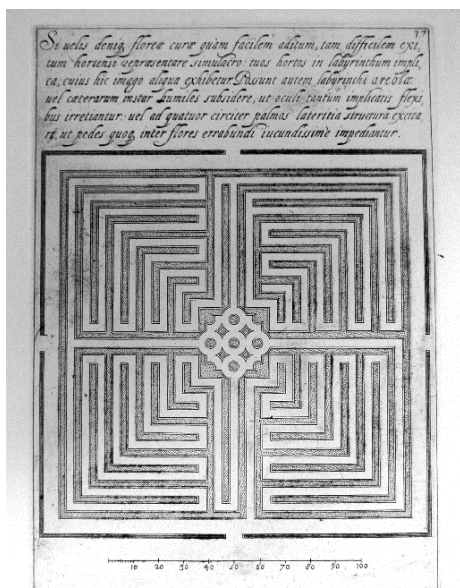 37
Si uelis deniq, floreæ curæ quàm facilem aditum, tam difficilem exi,
tum hortensi repræsentare simulacro: tuos hortos in labyrinthum impli,
ca, cuius hic imago aliqua exhibetur. Possunt autem labyrinthi areolæ
uel cæterarum instar humiles subsidere, ut oculi tantum implicatis flexi,
bus irretiantur: uel ad quatuor circiter palmos lateritia structura excita,
ri, ut pedes quoq, inter flores errabundi iucundissimè impediantur.
10 20 30 40 50 60 70 80 90 100